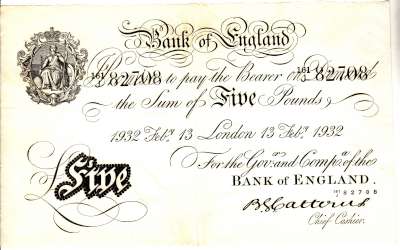 Bank of England
161/J 82708 I Promise to pay the Bearer on Demand 161/J 82708
the Sum of Five Pounds
1932 Feb.y 13 London 13 Feb.y 1932
For the Gov.r and Comp.a of the
BANK OF ENGLAND.
£Five 161/J 82708
B G Catterns
Chief Cashier.